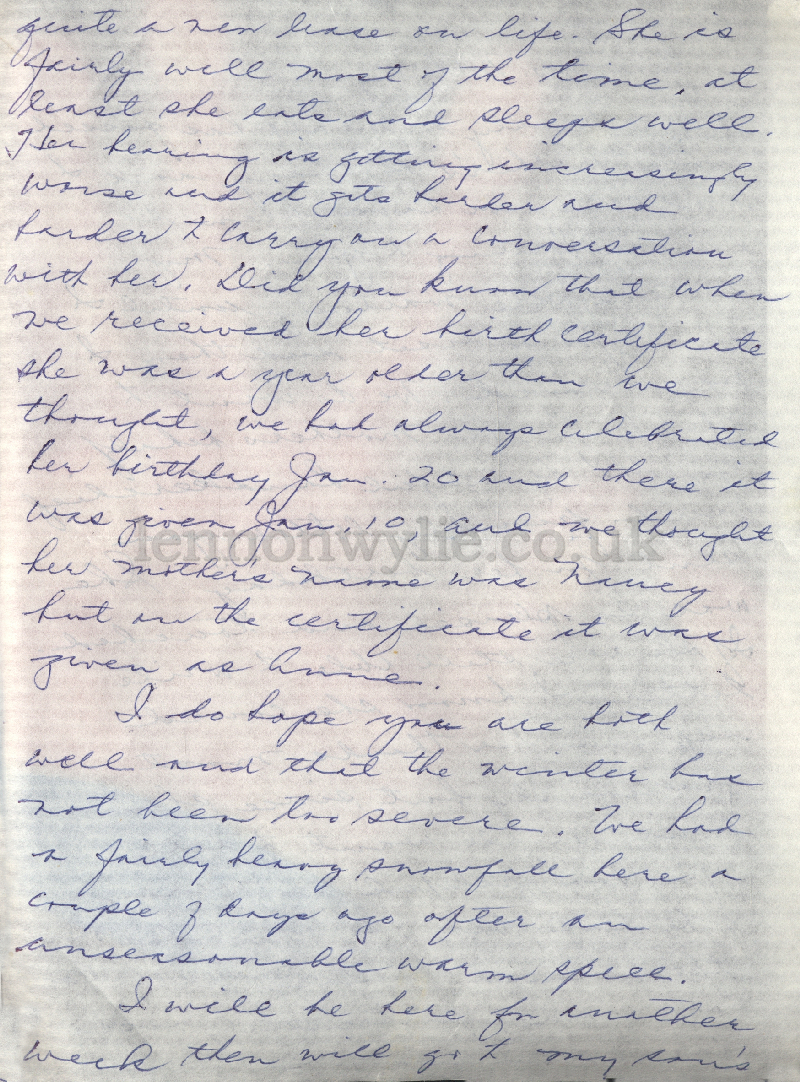 quite a new lease on life. She is
fairly well most of the time, at
least she eats and sleeps well.
Her hearing is getting increasingly
worse and it gets harder and
harder to carry on a conversation
with her. Did you know that when
we received her birth certificate
she was a year older than we
thought, we had always celebrated
her birthday Jan. 20 and there it
was given Jan. 10, and we thought
lennonwylie.co.uk
her mother's name was Nancy
but on the certificate it was
given as Anne.
I do hope you are both
well and that the winter has
not been too severe. We had
a fairly heavy snowfall here a
couple of days ago after an
unseasonable warm spell.
I will be here for another
week then will go to my son's